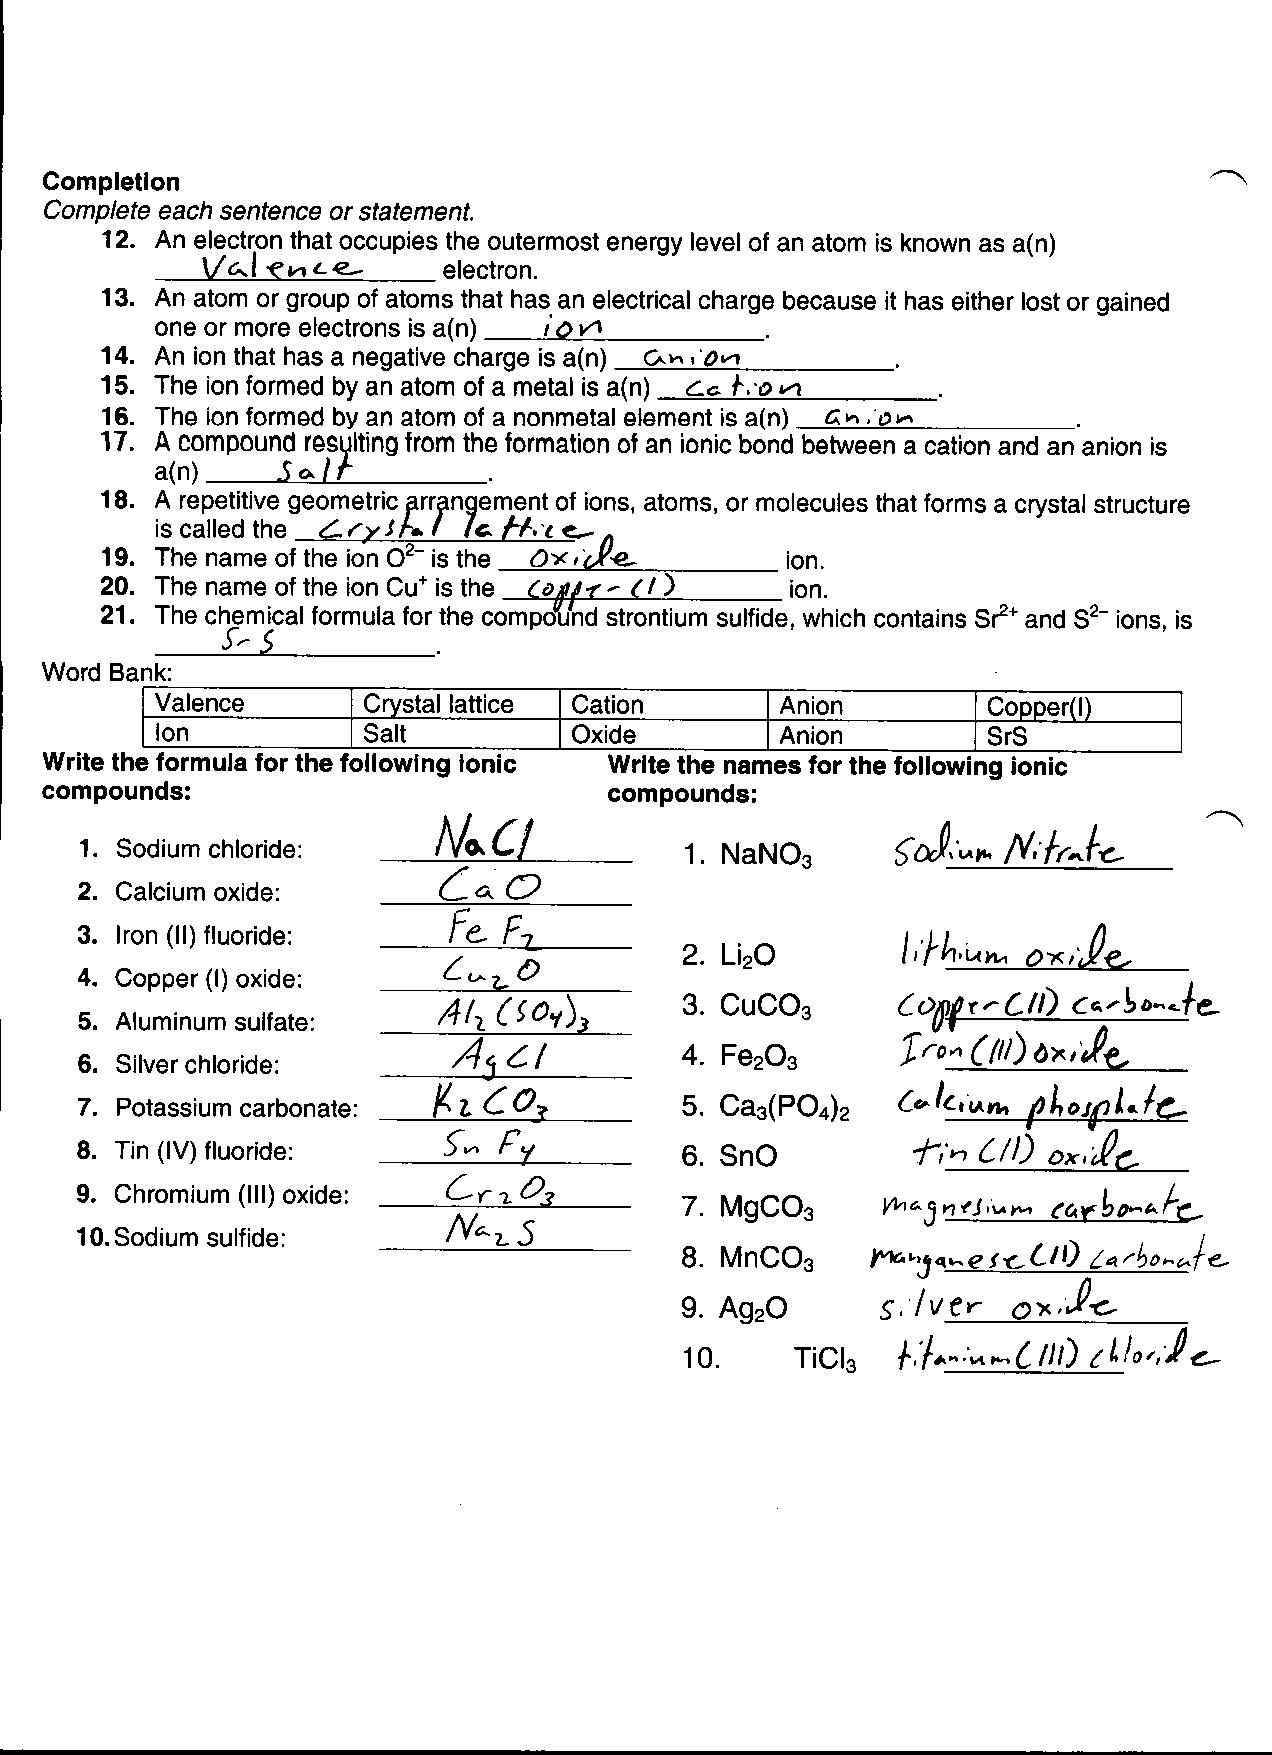 Completion
Complete each sentence or statement.
12. An electron that occupies the outermost energy level of an atom is known as a(n)
Valence electron.
13. An atom or group of atoms that has an electrical charge because it has either lost or gained
one or more electrons is a(n) ion.
14. An ion that has a negative charge is a(n) anion.
15. The ion formed by an atom of a metal is a(n) cation.
16. The ion formed by an atom of a nonmetal element is a(n) anion.
17. A compound resulting from the formation of an ionic bond between a cation and an anion is
a(n) salt.
18. A repetitive geometric arrangement of ions, atoms, or molecules that forms a crystal structure
is called the crystal lattice
19. The name of the ion O²⁻ is the oxide ion.
20. The name of the ion Cu⁺ is the copper (I) ion.
21. The chemical formula for the compound strontium sulfide, which contains Sr²⁺ and S²⁻ ions, is
SrS.
Word Bank:
Valence Crystal lattice Cation Anion Copper(I)
Ion Salt Oxide Anion SrS
Write the formula for the following ionic
compounds:
1. Sodium chloride: NaCl
2. Calcium oxide: CaO
3. Iron (II) fluoride: FeF₂
4. Copper (I) oxide: Cu₂O
5. Aluminum sulfate: Al₂(SO₄)₃
6. Silver chloride: AgCl
7. Potassium carbonate: K₂CO₃
8. Tin (IV) fluoride: SnF₄
9. Chromium (III) oxide: Cr₂O₃
10. Sodium sulfide: Na₂S
Write the names for the following ionic
compounds:
1. NaNO₃ Sodium Nitrate
2. Li₂O lithium oxide
3. CuCO₃ Copper (II) carbonate
4. Fe₂O₃ Iron (III) oxide
5. Ca₃(PO₄)₂ Calcium phosphate
6. SnO tin (II) oxide
7. MgCO₃ magnesium carbonate
8. MnCO₃ manganese (II) carbonate
9. Ag₂O silver oxide
10. TiCl₃ titanium (III) chloride